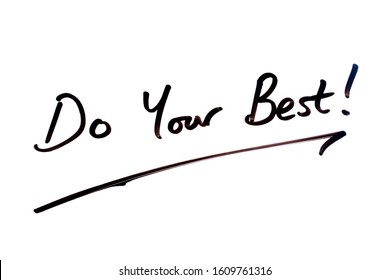 Do Your Best!
shutterstock.com · 1609761316